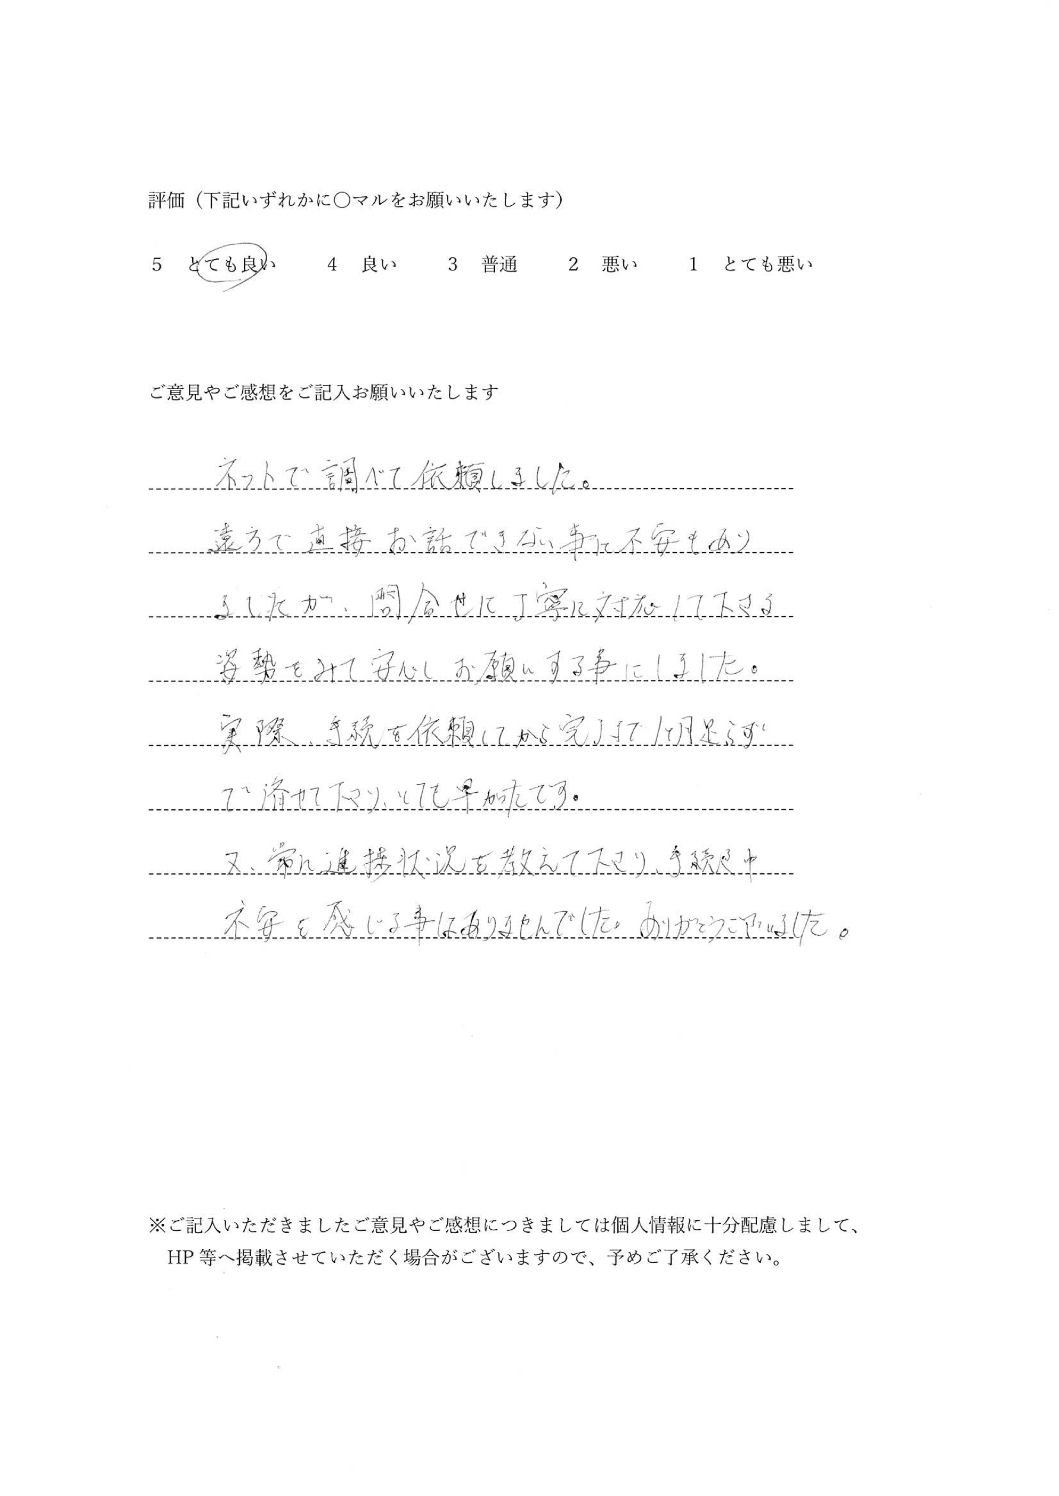 評価（下記いずれかに○マルをお願いいたします）
5 とても良い 4 良い 3 普通 2 悪い 1 とても悪い
ご意見やご感想をご記入お願いいたします
ネットで調べて依頼しました。
遠方で直接お話できない事に不安もあり
ましたが、問合せに丁寧に対応して下さる
姿勢をみて安心しお願いする事にしました。
実際、手続を依頼してから完了まで1ヶ月足らず
で済ませて下さり、とても早かったです。
又、常に進捗状況を教えて下さり、手続き中
不安を感じる事はありませんでした。ありがとうございました。
※ご記入いただきましたご意見やご感想につきましては個人情報に十分配慮しまして、
HP 等へ掲載させていただく場合がございますので、予めご了承ください。